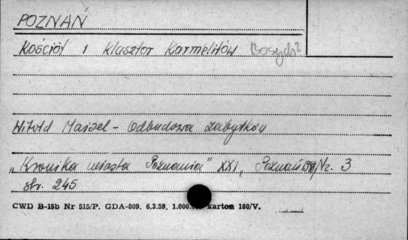 POZNAŃ
Kościół i Klasztor Karmelitów Bosych?
Witold Maisel - Odbudowa zabytków
„Kronika miasta Poznania" XXI, Poznań Nr. 3
str. 245
CWD B-15b Nr 515/P. GDA-809. 6.3.59. karton 180/V.